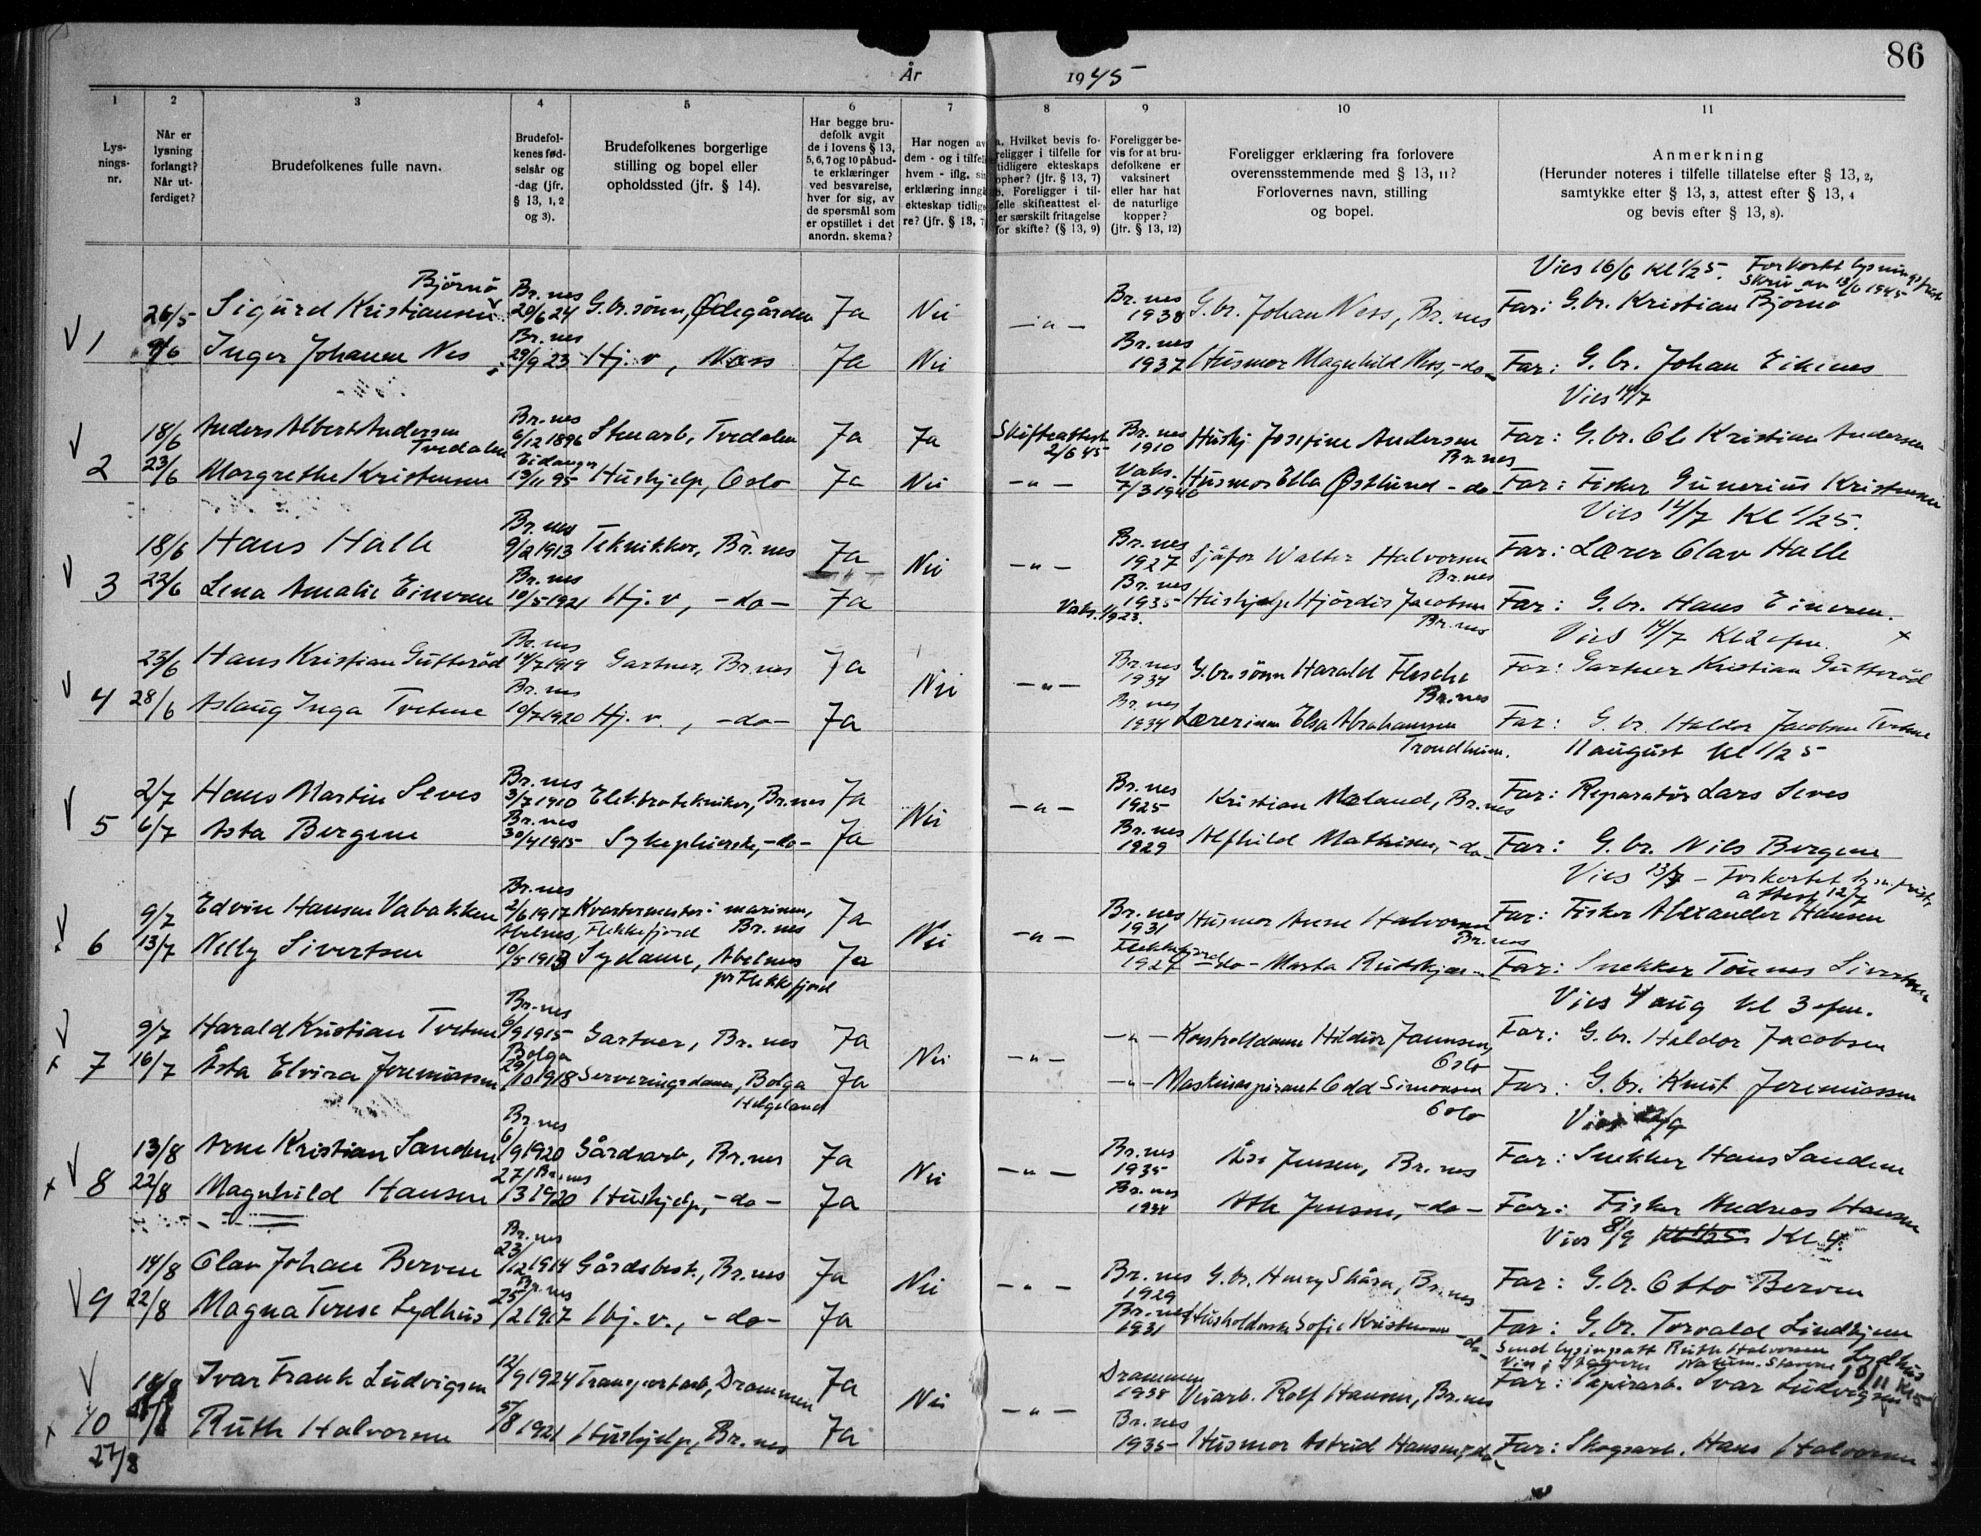 86
År 1945
1 2 3 4 5 6 7 8 9 10 11
Lysningsnr.
Når er lysning forlangt? Når utferdiget?
Brudefolkenes fulle navn.
Brudefolkenes fødselsår og -dag (jfr. § 13, 1, 2 og 3).
Brudefolkenes borgerlige stilling og bopel eller opholdssted (jfr. § 14).
Har begge brudefolk avgit de i lovens § 13, 5, 6, 7 og 10 påbudte erklæringer ved besvarelse, hver for sig, av de spørsmål som er opstillet i det anordn. skema?
Har nogen av dem - og i tilfelle hvem - iflg. sin erklæring inngå ekteskap tidligere? (jfr. § 13, 7)
a. Hvilket bevis foreligger i tilfelle for tidligere ekteskaps ophør? (jfr. § 13, 7)
b. Foreligger i tilfelle skifteattest eller særskilt fritagelse for skifte? (§ 13, 9)
Foreligger bevis for at brudefolkene er vaksinert eller har hat de naturlige kopper? (jfr. § 13, 12)
Foreligger erklæring fra forlovere overensstemmende med § 13, 11? Forlovernes navn, stilling og bopel.
Anmerkning
(Herunder noteres i tilfelle tillatelse efter § 13, 2, samtykke efter § 13, 3, attest efter § 13, 4 og bevis efter § 13, 8).
Vies 16/6 Kl 1/25. Forkortet lysningsfrist
Skriv av 13/6 1945
V 1 26/5 Sigurd Kristiansen Bjørnø Br.nes 20/6 24 G.br.sønn, Ødegården Ja Nei -"- Br.nes 1938 G.br. Johan Ness, Br.nes Far: G.br. Kristian Bjørnø
9/6 Inger Johanne Nes Br.nes 29/9 23 Hj.v., Næss Ja Nei Br.nes 1937 Husmor Magnhild Nes, -do- Far: G.br. Johan
Vies 14/7
V 2 18/6 Anders Albert Andersen Tvedalen Br.nes 6/12 1896 Stenarb, Tvedalen Ja Ja Skifteattest 2/6 45 Br.nes 1910 Hushj. Josefine Andersen Br.nes Far: G.br. Ole Kristian Andersen
23/6 Margrethe Kristensen Eidanger 13/11 95 Hushjelp, Oslo Ja Nei -"- Vaks. 7/3 1940 Husmor Ella Østlund -do- Far: Fisker Gunerius Kristensen
Vies 14/7 Kl 1/25.
V 3 18/6 Hans Halle Br.nes 9/2 1913 Tekniker, Br.nes Ja Nei -"- Br.nes 1927 Sjåfør Walter Halvorsen Br.nes Far: Lærer Olav Halle
22/6 Lena Amalie Einven Br.nes 10/5 1921 Hj.v, -do- Ja Vaks. 1923. Br.nes 1935 Hushjelp Hjördis Jacobsen Br.nes Far: G.br. Hans
Vies 14/7 Kl 2 efm. x
V 4 23/6 Hans Kristian Gutterød Br.nes 14/7 1919 Gartner, Br.nes Ja Nei -"- Br.nes 1934 G.br.sønn Harald Br.nes Far: Gartner Kristian Gutterød
28/6 Aslaug Inga Tvetene Br.nes 10/7 1920 Hj.v., -do- Ja Br.nes 1934 Lærerinne Elsa Abrahamsen Trondheim. Far: G.br. Haldor Jacobsen Tvetene
11 august kl 1/25
V 5 2/7 Hans Martin Seves Br.nes 3/7 1910 Elektrotekniker, Br.nes Ja Nei -"- Br.nes 1925 Kristian Mæland, Br.nes Far: Reparatør Lars Seves
6/7 Asta Bergene Br.nes 30/4 1915 Sykepleierske, -do- Ja Br.nes 1929 Alfhild Mathisen, -do- Far: G.br. Nils Bergene
Vies 13/7 - Forkortet lysn.frist, attest 12/7
V x 6 9/7 Edvin Hansen Vabakken Br.nes 2/6 1917 Kvartermester i marinen, Br.nes Ja Nei -"- Br.nes 1931 Husmor Anne Halvorsen Br.nes Far: Fisker Alexander Hansen
13/7 Nelly Sivertsen Abelnes, Flekkefjord 10/5 1913 Sydame, Abelnes pr Flekkefjord Ja Flekkefjord 1927 -do- Marta Far: Snekker Tønnes Sivertsen
Vies 4 aug kl 3 efm.
V x 7 9/7 Harald Kristian Tvetene Br.nes 6/9 1915 Gartner, Br.nes Ja Nei -"- -"- Kontrolldame Oslo Far: G.br. Haldor Jacobsen
16/7 Åsta Elvira Jeremiassen Bolga 29/10 1918 Serveringsdame, Bolga Helgeland Ja -"- Maskinaspirant Odd Simonsen Oslo Far: G.br. Knut Jeremiassen
Vies /9
V x 8 13/8 Arne Kristian Sanden Br.nes 6/9 1920 Gårdsarb, Br.nes Ja Nei -"- Br.nes 1935 Jensen, Br.nes Far: Snekker Hans Sanden
22/8 Magnhild Hansen 27/3 1920 Br.nes Hushjelp, -do- Ja Br.nes Jensen, -do- Far: Fisker Andreas Hansen
Vies 8/9 Kl 4.
V 9 14/8 Olav Johan Berven Br.nes 23/12 1914 Gårdsbest., Br.nes Ja Nei -"- Br.nes 1929 G.br. Henry Skåra, Br.nes Far: G.br. Otto Berven
22/8 Magna Terese Lydhus Br.nes 25/2 1917 Hj.v., -do- Ja Br.nes 1931 Sofie Kristensen -do- Far: G.br. Torvald Lindhjem Lydhus
Send lysingsatt Ruth Halvorsen
Vies i Stavern 10/11 Kl 5
V x 10 Ivar Frank Ludvigsen 12/9 1924 Transportarb, Drammen Ja Nei -"- Drammen 1938 Rolf Hansen, Br.nes Far: Papirarb. Ivar Ludvigsen
Ruth Halvorsen 5/8 1921 Hushjelp, Br.nes Ja Br.nes 1935 Husmor Astrid Hansen, do- Far: Skogsarb. Hans Halvorsen
27/8